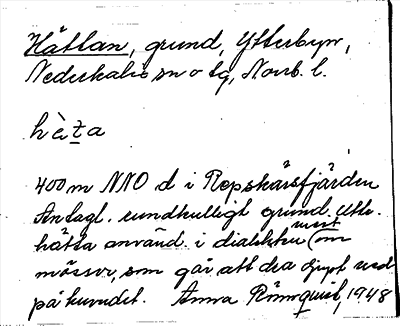 Hättan, grund, Ytterbyn,
Nederkalix sn o tg, Norrb. l.
hä̀ta
400 m NNO d i Repskärsfjärden
Antagl. rundkulligt grund. Uttr.
hätta använd. i dialekten mest (om
mössor, som går att dra djupt ned
på huvudet. Anna Rönnquist, 1948